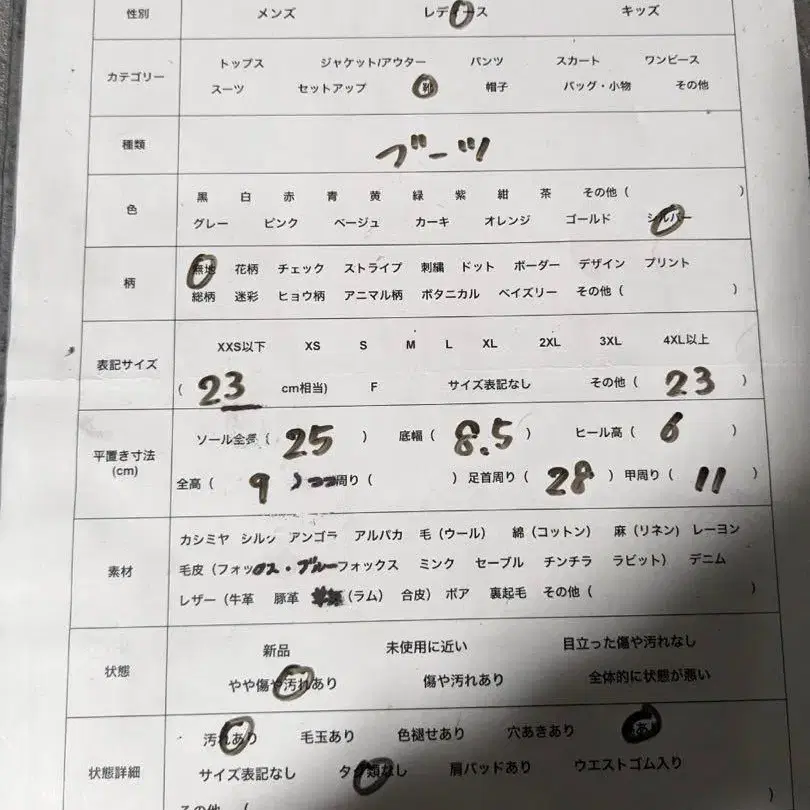 性別 メンズ レディース キッズ
カテゴリー トップス ジャケット/アウター パンツ スカート ワンピース
スーツ セットアップ 靴 帽子 バッグ・小物 その他
種類 ブーツ
色 黒 白 赤 青 黄 緑 紫 紺 茶 その他 ( )
グレー ピンク ベージュ カーキ オレンジ ゴールド シルバー
柄 無地 花柄 チェック ストライプ 刺繍 ドット ボーダー デザイン プリント
総柄 迷彩 ヒョウ柄 アニマル柄 ボタニカル ペイズリー その他 ( )
表記サイズ XXS以下 XS S M L XL 2XL 3XL 4XL以上
( 23 cm相当) F サイズ表記なし その他 ( 23 )
平置き寸法 (cm) ソール全長 ( 25 ) 底幅 ( 8.5 ) ヒール高 ( 6 )
全高 ( 9 ) 周り ( ) 足首周り ( 28 ) 甲周り ( 11 )
素材 カシミヤ シルク アンゴラ アルパカ 毛 (ウール) 綿 (コットン) 麻 (リネン) レーヨン
毛皮 (フォックス・ブルーフォックス ミンク セーブル チンチラ ラビット) デニム
レザー (牛革 豚革 (ラム) 合皮) ボア 裏起毛 その他 ( )
状態 新品 未使用に近い 目立った傷や汚れなし
やや傷や汚れあり 傷や汚れあり 全体的に状態が悪い
状態詳細 汚れあり 毛玉あり 色褪せあり 穴あきあり
サイズ表記なし タグ類なし 肩パッドあり ウエストゴム入り
その他 ( )